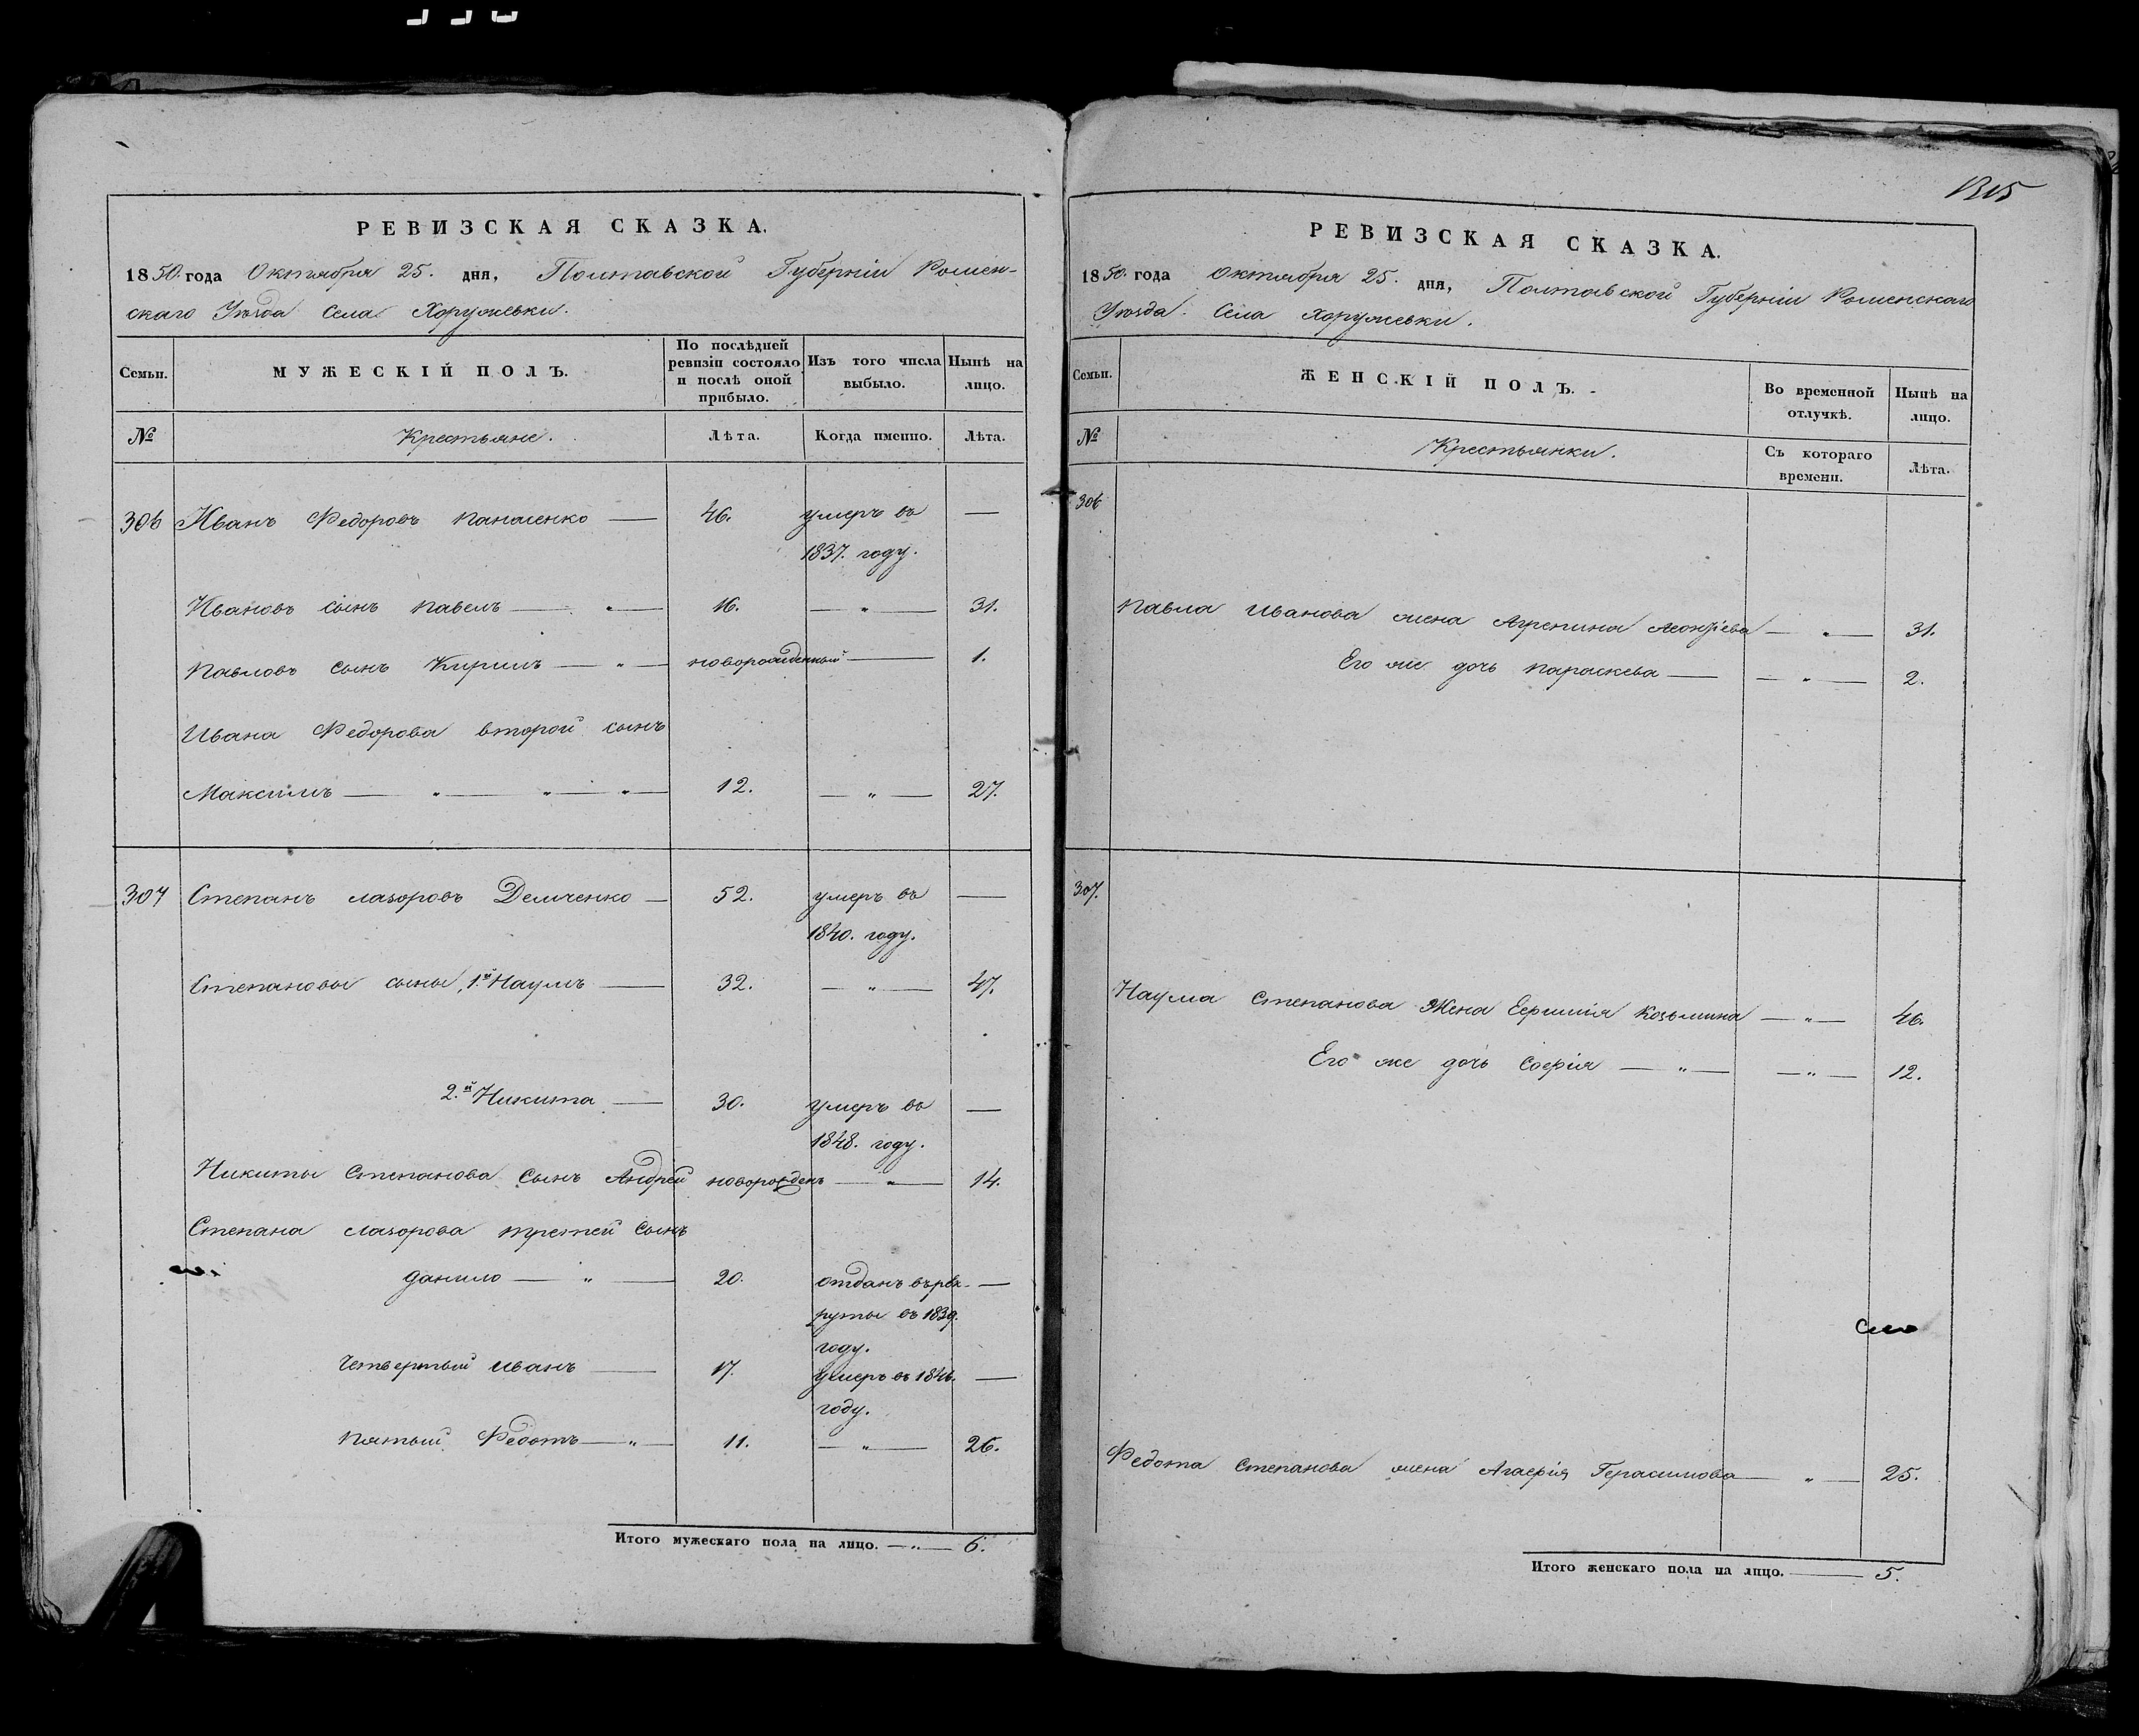 РЕВИЗСКАЯ СКАЗКА.
1850. года Октября 25. дня, Полтавской Губерніи Ромен-
скаго Уѣзда Села Хоружевки.
Семьи.
МУЖЕСКІЙ ПОЛЪ.
По послѣдней ревизіи состояло и послѣ оной прибыло.
Изъ того числа выбыло.
Нынѣ на лицо.
№ Крестьяне. Лѣта. Когда именно. Лѣта.
306 Иванъ Федоровъ Панасенко — 46. умеръ въ —
1837. году.
Ивановъ сынъ Павелъ — „ — 16. — „ — 31.
Павловъ сынъ Кирилъ — „ — новорожденный — 1.
Ивана Федорова второй сынъ
Максимъ — „ — „ — „ — 12. — „ — 27.
307 Степанъ Лазоровъ Демченко — 52. умеръ въ —
1840. году.
Степановы сыны, 1.й Наумъ — 32. — „ — 47.
2.й Никита — 30. умеръ въ —
1848. году.
Никиты Степанова сынъ Андрей новорожденъ — „ — 14.
Степана Лазорова третей сынъ
Данило — „ — 20. отданъ въ рек- —
руты въ 1839.
году.
Четвертый Иванъ — 17. умеръ въ 1846. —
году.
Пятый Федотъ — „ — 11. — „ — 26.
Итого мужескаго пола на лицо. — „ — 6.
1315
РЕВИЗСКАЯ СКАЗКА.
1850. года Октября 25. дня, Полтавской Губерніи Роменскаго
Уѣзда. Села Хоружевки.
Семьи.
ЖЕНСКІЙ ПОЛЪ.
Во временной отлучкѣ.
Нынѣ на лицо.
№ Крестьянки. Съ котораго времени. Лѣта.
306
Павла Иванова жена Агрепина Леонтіева — „ — 31.
Его же дочь Параскева — — „ — 2.
307.
Наума Степанова Жена Ефимія Козьмина — „ — 46.
Его же дочь Софія — „ — — „ — 12.
Федота Степанова жена Агафія Герасимова — „ — 25.
Итого женскаго пола на лицо. — 5.